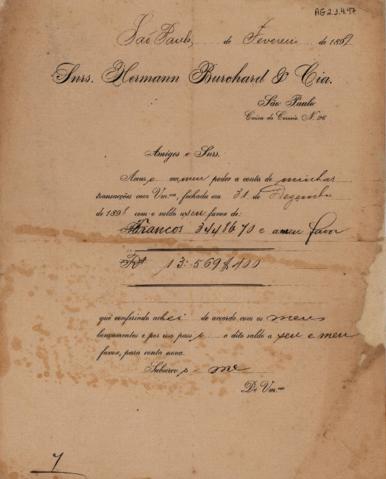 AG2.3.4.47
São Paulo, de Fevereiro de 189
Snrs. Hermann Burchard & Cia.
São Paulo
Caixa do Correio N.º
Amigos e Snrs.
em poder a conta de minhas
transacções com Vm.ces, fechada em 31 de Dezembro
de 189 com o saldo a seu favor de:
Francos e a meu favor
Rs 13:569$100
que conferindo achei de accordo com os meus
lançamentos e por isso passo o dito saldo a seu e meu
favor, para conta nova.
Subscrevo-me
De Vm.ces